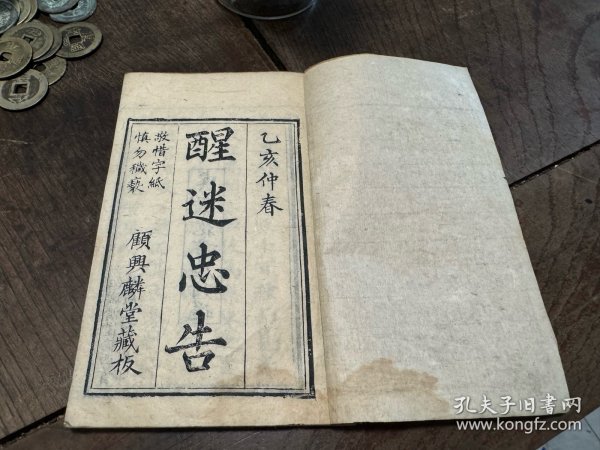 乙亥仲春
醒迷忠告
敬惜字紙
慎勿穢褻
顧興麟堂藏板
孔夫子旧书网
www.kongfz.com